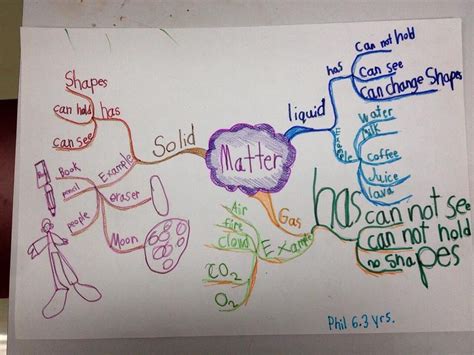 Matter
Solid
has
Shapes
can hold
can see
Example
Book
pencil
people
eraser
Moon
liquid
has
Can not hold
Can see
Can change Shapes
Example
Water
Milk
coffee
Juice
lava
Gas
has
can not see
can not hold
no shapes
Example
Air
fire
cloud
CO2
O2
Phil 6.3 yrs.